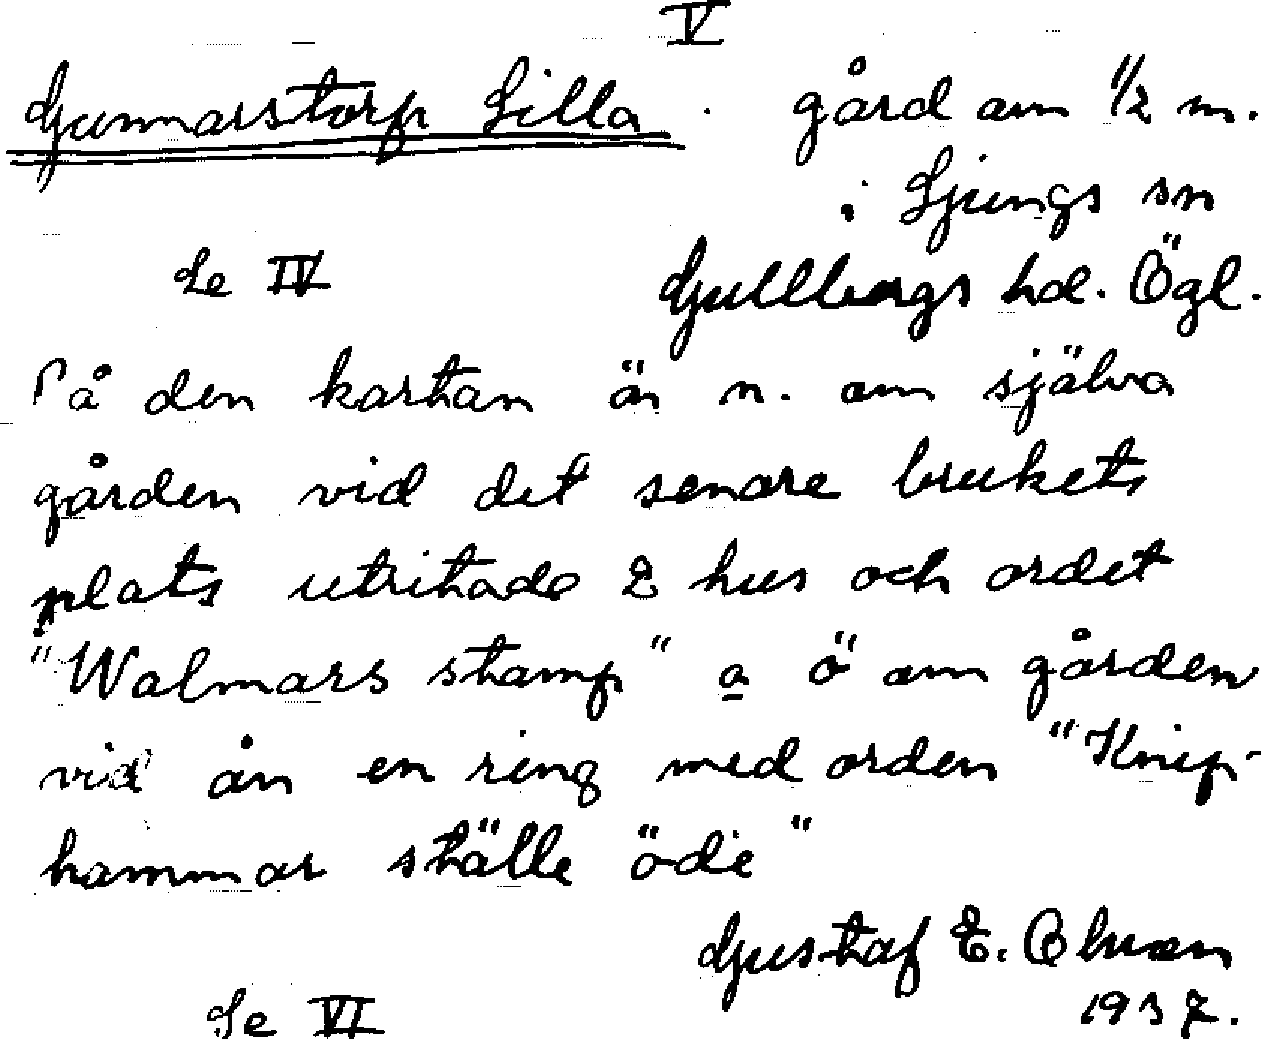 V
Gunnarstorp Lilla . gård om 1/2 m.
i Ljungs sn
Se IV Gullbergs hd. Ögl.
På den kartan är n. om själva
gården vid det senare brukets
plats utritade 2 hus och ordet
"Walmars stamp" o ö om gården
vid ån en ring med orden "Knip-
hammar ställe öde"
Gustaf E.
Se VI 1937.